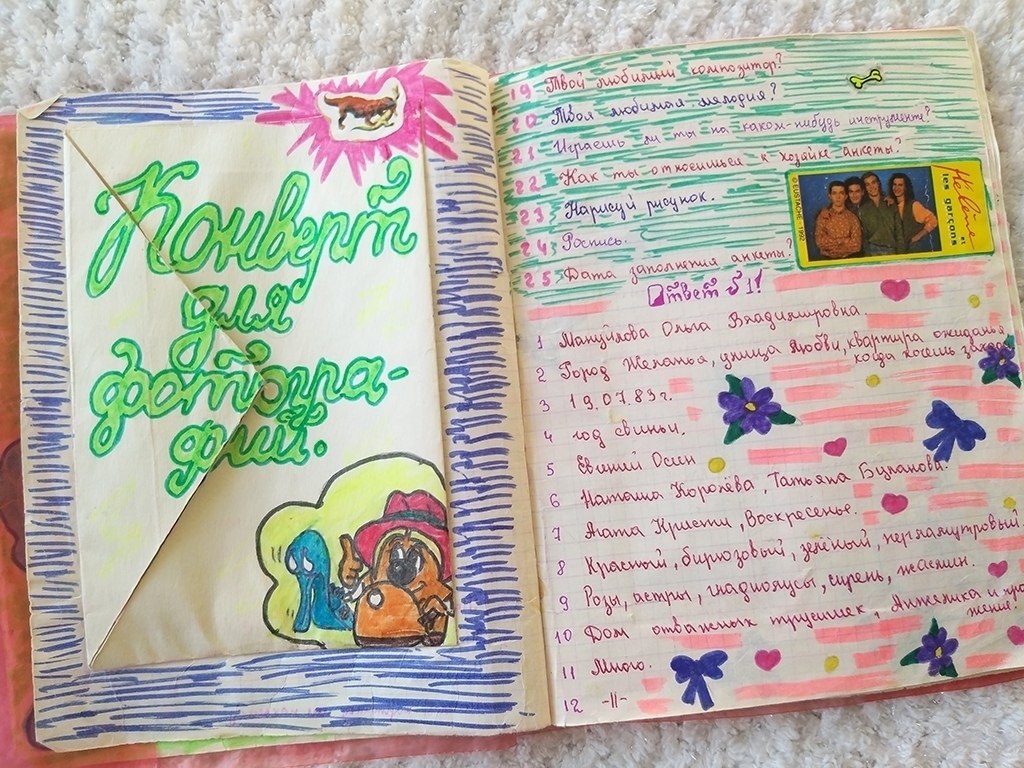 Конверт
для
фотогра-
фий.
19 Твой любимый композитор?
20 Твоя любимая мелодия?
21 Играешь ли ты на каком-нибудь инструменте?
22 Как ты относишься к хозяйке анкеты?
23 Нарисуй рисунок.
24 Роспись.
25 Дата заполнения анкеты?
© EUSTACHE 1992
Hélène
et
les garçons
Ответ 1!
1 Мануйлова Ольга Владимировна.
2 Город Желанья, улица Любви, квартира ожиданья
когда хочешь
3 19.07.83 г.
4 год свиньи.
5 Евгний Осин
6 Наташа Королёва, Татьяна Буланова.
7 Агата Кристи, Воскресенье.
8 Красный, бирюзовый, зелёный, перламутровый
9 Розы, астры, гладиолусы, сирень, жасмин.
10 Дом отважных трусишек, Анжелика и
11 Много.
12 -||-